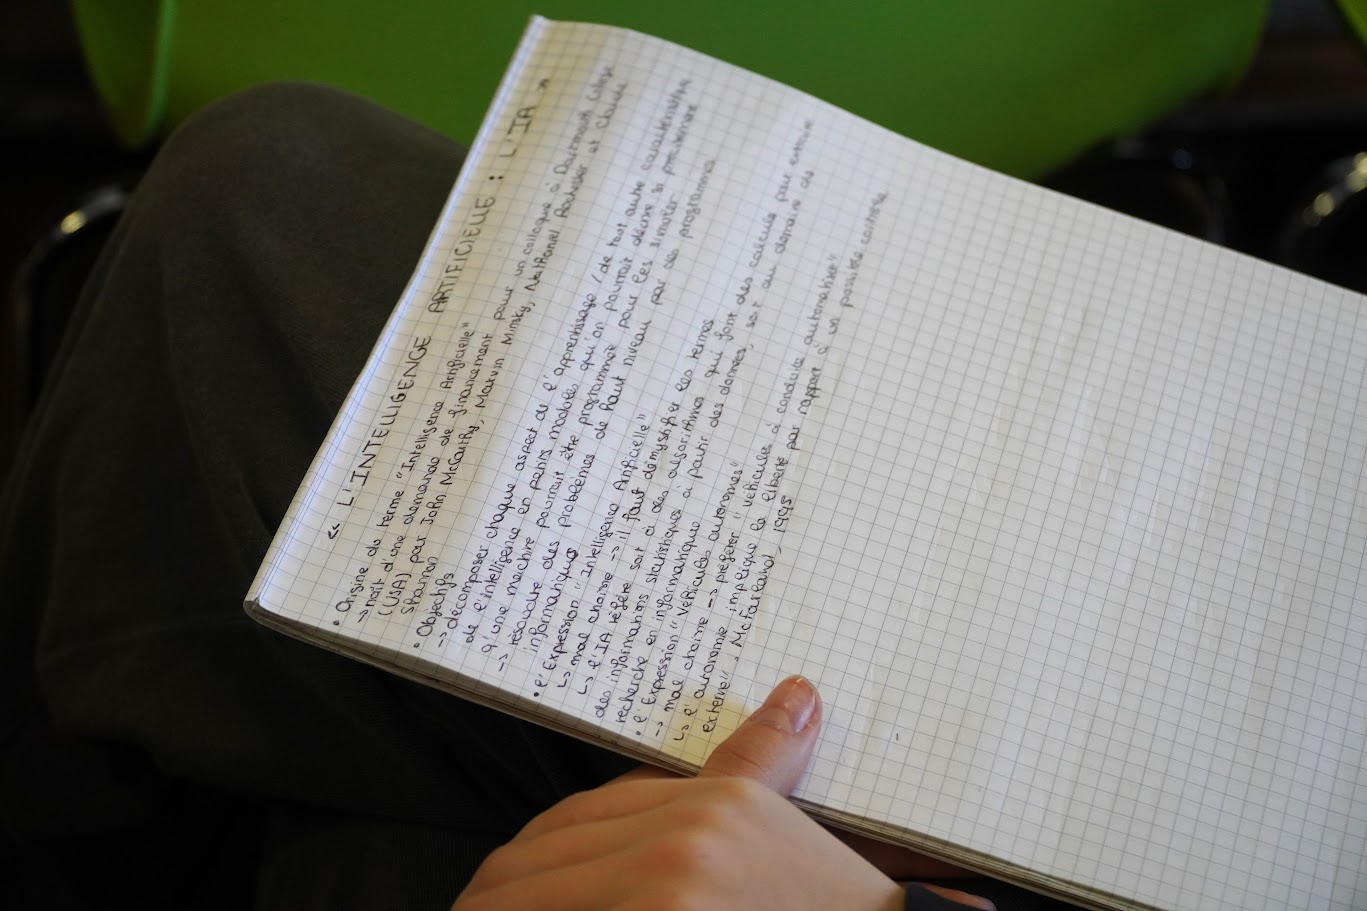 « L'INTELLIGENCE ARTIFICIELLE : L'IA »
• Origine du terme "Intelligence Artificielle"
→ naît d'une demande de financement pour un colloque à Dartmouth College
(USA) par John McCarthy, Marvin Minsky, Nathaniel Rochester et Claude
Shannon
• Objectifs
→ décomposer chaque aspect de l'apprentissage / de tout autre
de l'intelligence en petits modules qu'on pourrait décrire si précisément
q'une machine pourrait être programmée pour les simuler
→ résoudre des problèmes de haut niveau par des programmes
informatiques
• l'Expression "Intelligence Artificielle"
↳ mal choisie → il faut démystifier les termes
↳ l'IA réfère soit à des algorithmes qui font des calculs pour extraire
des informations statistiques à partir des données, soit au domaine de
recherche en informatique
• l'Expression "véhicules autonomes"
→ mal choisie → préférer "véhicules à conduite automatisée"
↳ l'autonomie implique la liberté par rapport à un possible contrôle
externe". McFarland, 1995